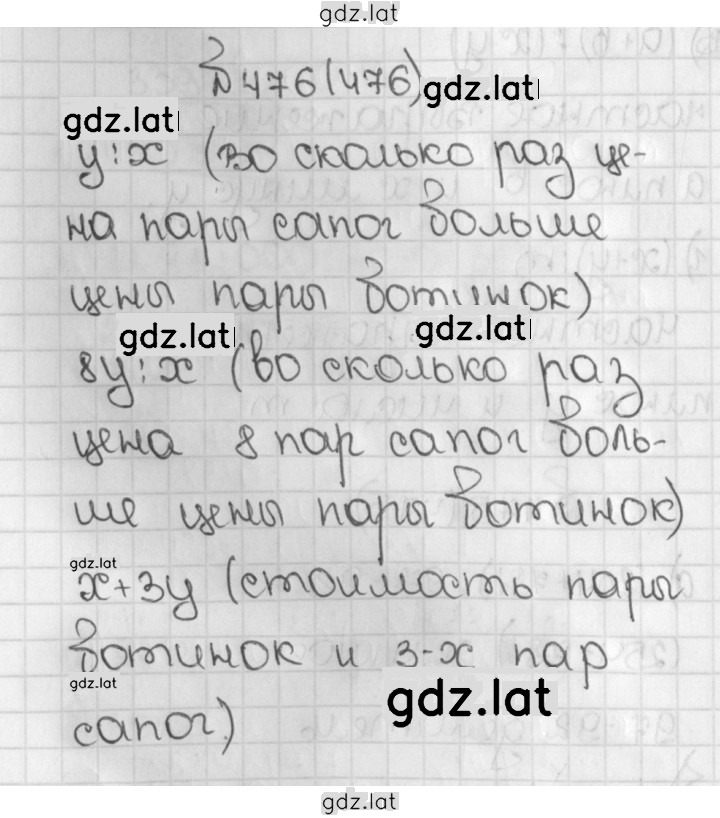 gdz.lat
№476(476)
gdz.lat
gdz.lat
y:x (во сколько раз це-
на пары сапог больше
цены пары ботинок)
gdz.lat
gdz.lat
8y:x (во сколько раз
цена 8 пар сапог боль-
ше цены пары ботинок)
gdz.lat
x+3y (стоимость пары
ботинок и 3-х пар
gdz.lat
gdz.lat
сапог)
gdz.lat